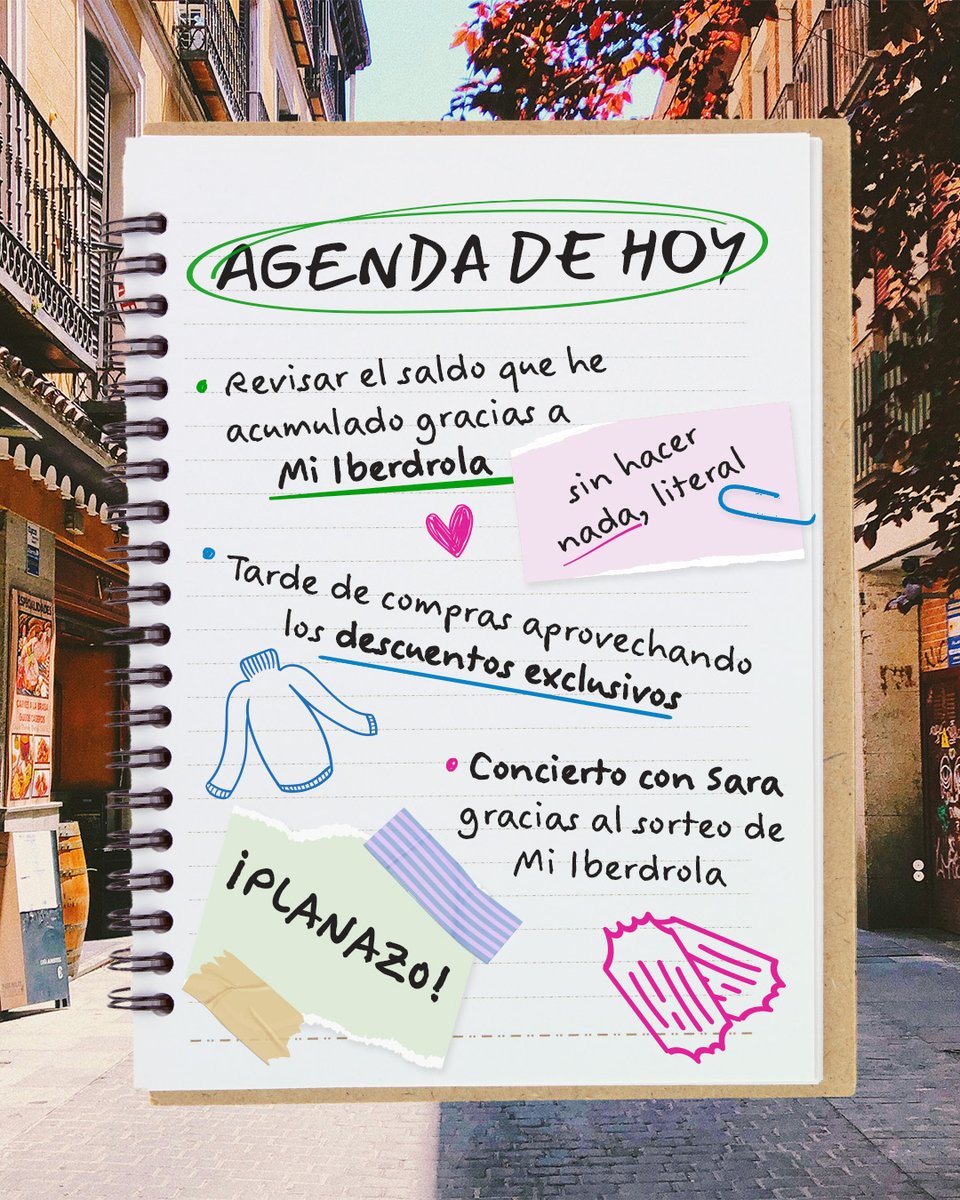 AGENDA DE HOY
Revisar el saldo que he
acumulado gracias a
Mi Iberdrola
sin hacer
nada, literal
Tarde de compras aprovechando
los descuentos exclusivos
Concierto con Sara
gracias al sorteo de
Mi Iberdrola
¡PLANAZO!
ESPECIALIDADES